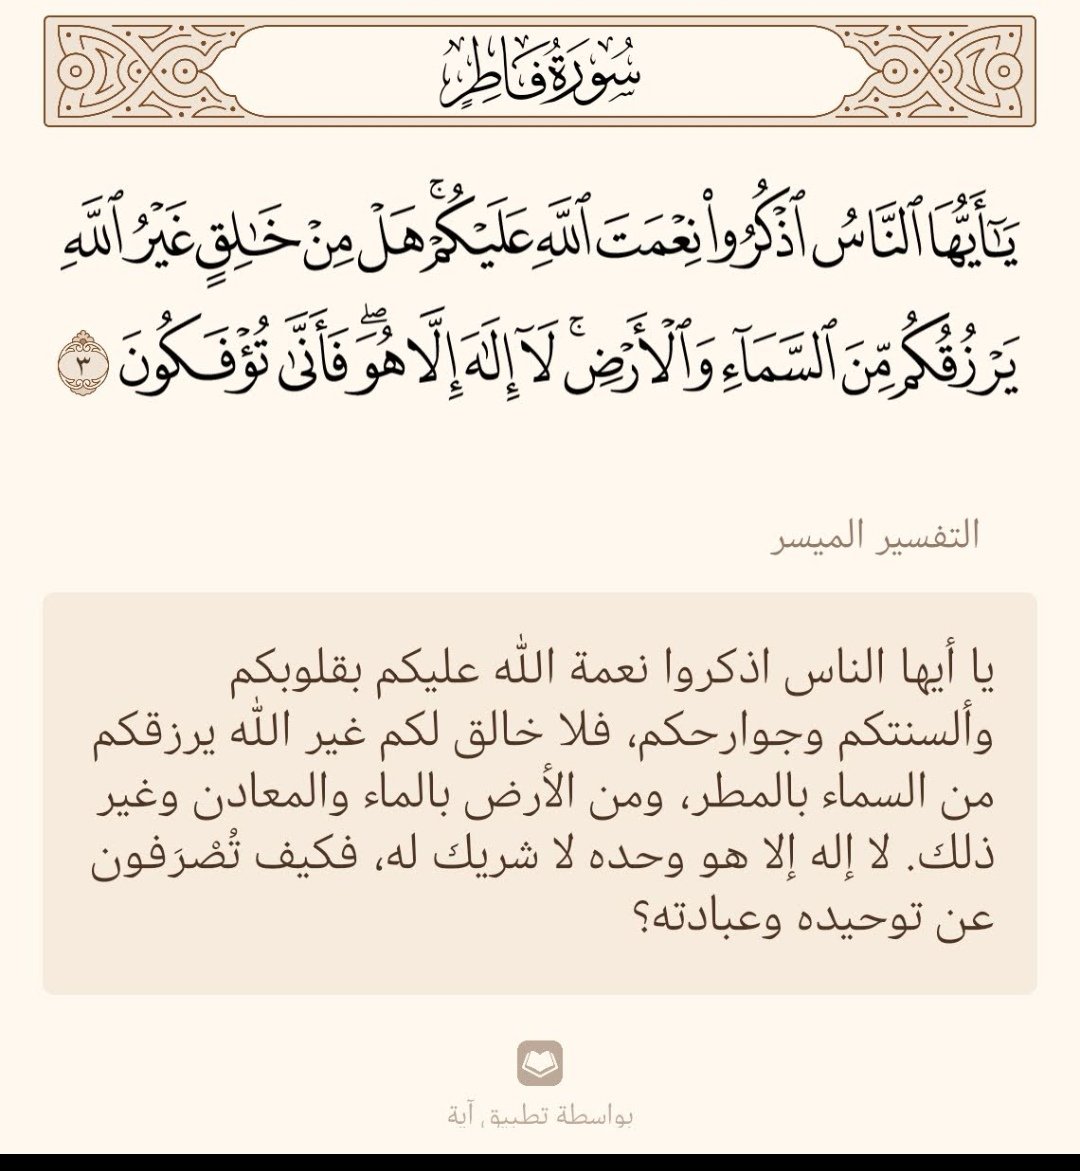 سُورَةُ فَاطِرٍ
يَـٰٓأَيُّهَا ٱلنَّاسُ ٱذۡكُرُواْ نِعۡمَتَ ٱللَّهِ عَلَيۡكُمۡۚ هَلۡ مِنۡ خَـٰلِقٍ غَيۡرُ ٱللَّهِ
يَرۡزُقُكُم مِّنَ ٱلسَّمَآءِ وَٱلۡأَرۡضِۚ لَآ إِلَـٰهَ إِلَّا هُوَۖ فَأَنَّىٰ تُؤۡفَكُونَ ٣
التفسير الميسر
يا أيها الناس اذكروا نعمة الله عليكم بقلوبكم
وألسنتكم وجوارحكم، فلا خالق لكم غير الله يرزقكم
من السماء بالمطر، ومن الأرض بالماء والمعادن وغير
ذلك. لا إله إلا هو وحده لا شريك له، فكيف تُصْرَفون
عن توحيده وعبادته؟
بواسطة تطبيق آية